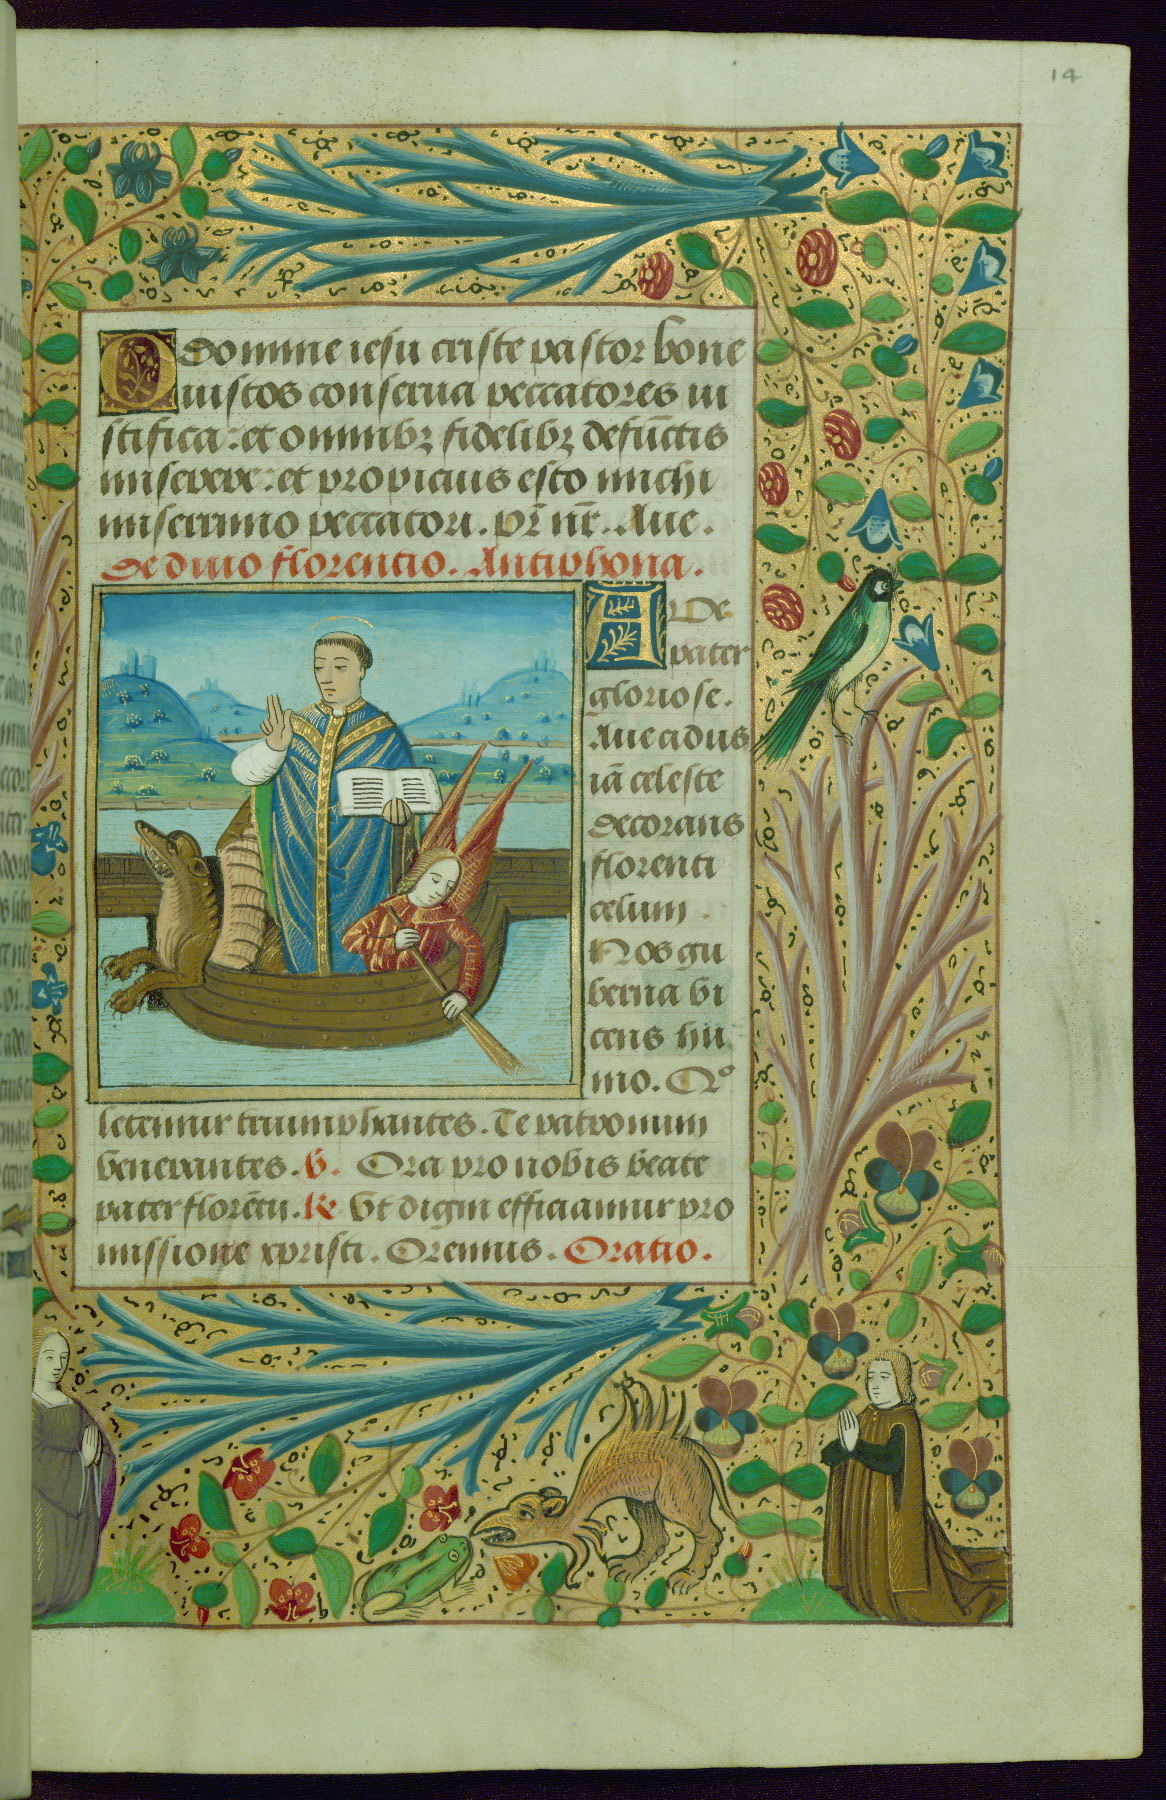 14
O domine iesu criste pastor bone
iustos conserua peccatores iu
stifica: et omnibꝫ fidelibꝫ defūctis
miserere: et propicius esto michi
miserrimo peccatori. Pr̄ nr̄. Aue.
De diuo florentio. Antiphona.
A ve
pater
gloriose.
Aue cidus
iā celeste
decorans
florenti
celum.
Nos gu
berna vi
cens hii
mo. Qº
letemur triumphantes. Te patronum
venerantes. V. Ora pro nobis beate
pater florēti. R Vt digni efficiamur pro
missione xpristi. Oremus. Oratio.